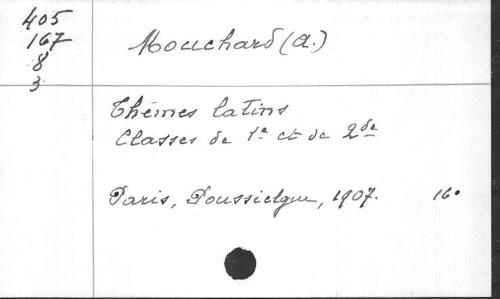 405
167
8
3
Mouchard (A.)
Thèmes latins
Classes de 1e et de 2de
Paris, Poussielgue, 1907. 16°